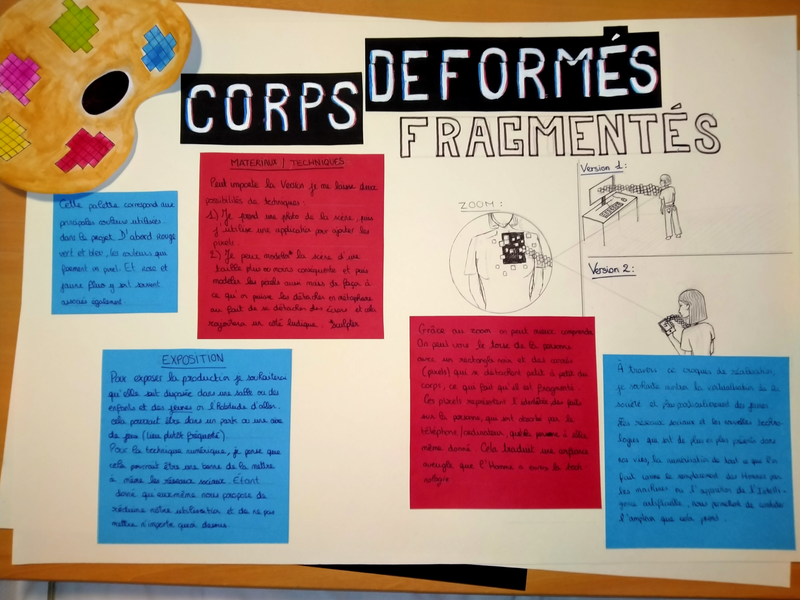 CORPS DEFORMÉS
FRAGMENTÉS
Cette palette correspond aux
principales couleurs utilisées
dans le projet. D'abord Rouge
vert et bleu, les couleurs qui
forment un pixel. Et rose et
jaune fluo y sont souvent
associés également.
MATERIAUX / TECHNIQUES
Peut importe la Version je me laisse deux
possibilités de techniques :
1) Je prend une photo de la scène, puis
j'utilise une application pour ajouter les
pixels
2) Je peux modeler* la scène d'une
taille plus ou moins conséquente et puis
modeler les pixels aux mais de façon à
ce qu'on puisse les détacher en métaphore
au fait de se détacher des écrans et cela
rajoutera un côté ludique. *Sculpter
EXPOSITION
Pour exposer la production je souhaiterai
qu'elle soit disposée dans une salle ou des
enfants et des jeunes on l'habitude d'aller.
cela pourrait être dans un parc ou une aire
de jeu (lieu plutôt fréquenté).
Pour la technique numérique, je pense que
cela pourrait être une bonne de la mettre
à même les réseaux sociaux. Etant
donné que eux même nous propose de
réduire nôtre utilisation et de ne pas
mettre n'importe quoi dessus.
ZOOM :
Version 1 :
Version 2 :
Grâce au zoom on peut mieux comprendre.
On peut voir le torse de la personne
avec un rectangle noir et des carrés
(pixels) qui se détachent petit à petit du
corps, ce qui fait qu'il est fragmenté.
Ces pixels représentent l'identité, des faits
sur la personne, qui sont absorbé par le
téléphone/ordinateur, qu'elle personne à elle
même donné. Cela traduit une confiance
aveugle que l'Homme a envers la tech-
nologie.
À travers ce croquis de réalisation,
je souhaite montrer la virtualisation de la
société et plus particulièrement des jeunes.
Les réseaux sociaux et les nouvelles techno-
logies qui sont de plus en plus présents dans
nos vies, la numérisation de tout ce que l'on
fait comme le remplacement des Hommes par
les machines ou l'apparition de l'Intelli-
gence artificielle, nous permettent de constater
l'ampleur que cela prend.